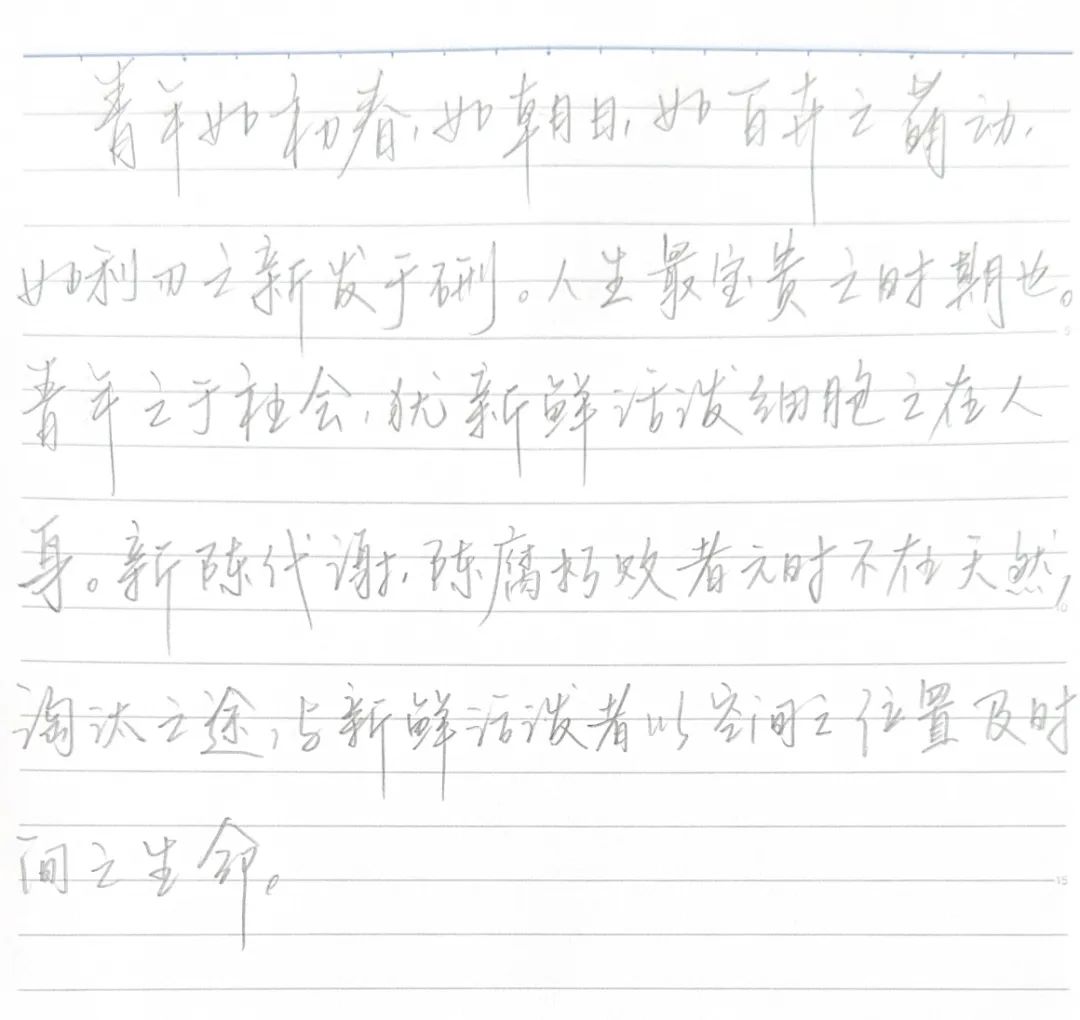 青年如初春,如朝日,如百卉之萌动,
如利刃之新发于硎。人生最宝贵之时期也。
青年之于社会,犹新鲜活泼细胞之在人
身。新陈代谢,陈腐朽败者无时不在天然
淘汰之途,与新鲜活泼者以空间之位置及时
间之生命。